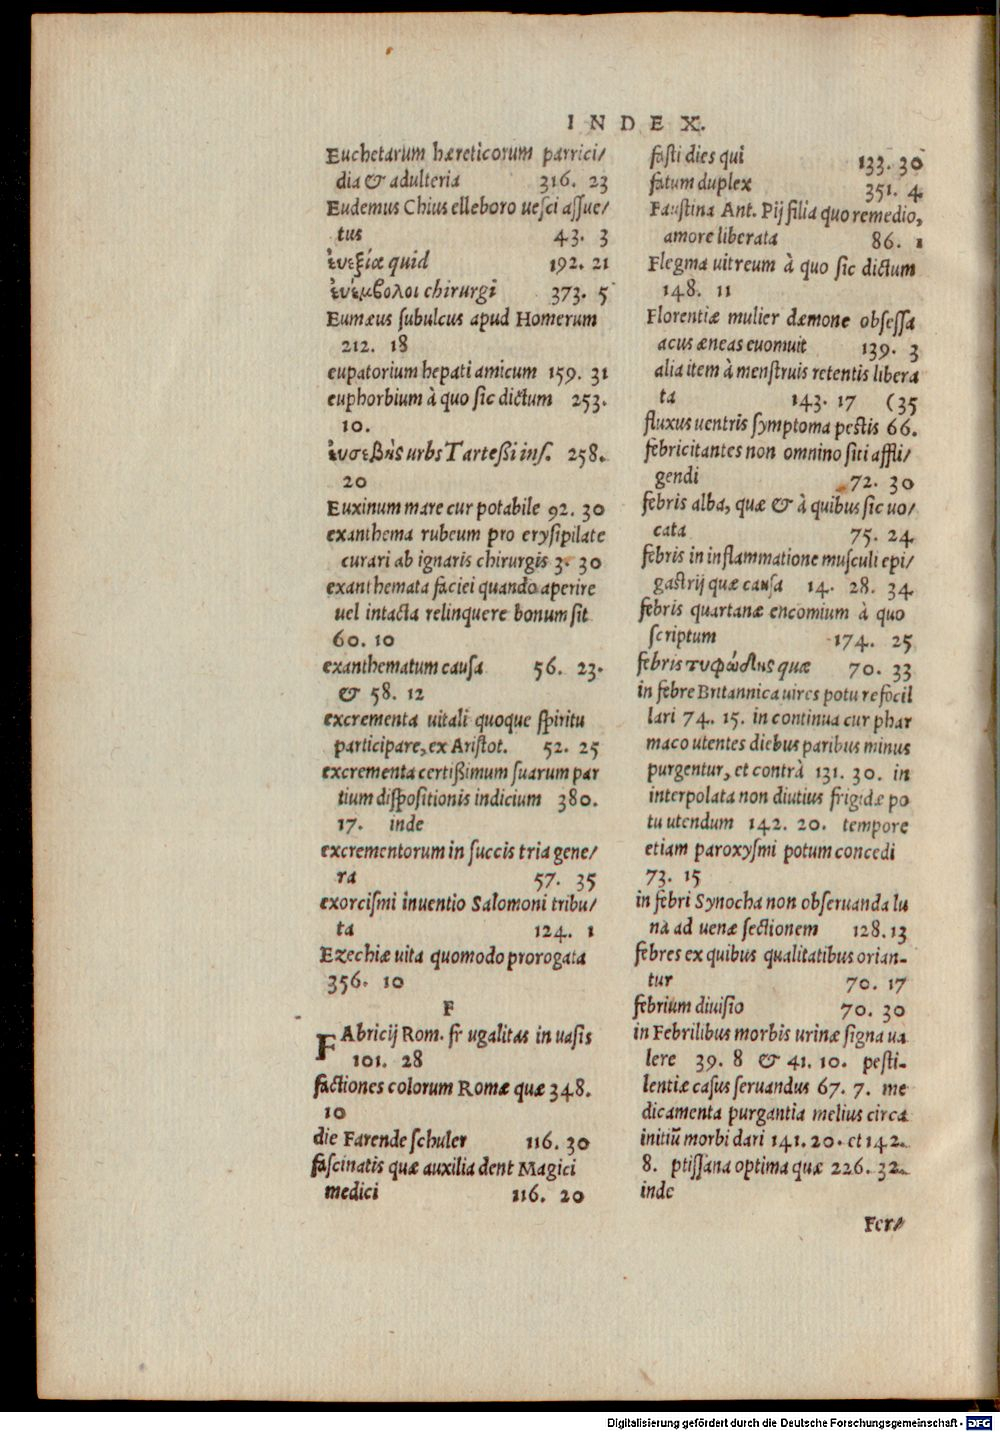 INDEX.
Euchetarum hæreticorum parrici/
dia & adulteria 316. 23
Eudemus Chius elleboro uesci assue/
tus 43. 3
ἐυεξίæ quid 192. 21
ἐυέμβολοι chirurgi 373. 5
Eumæus subulcus apud Homerum
212. 18
eupatorium hepati amicum 159. 31
euphorbium à quo sic dictum 253.
10.
ἐυσεβὴς urbs Tartessi ins. 258.
20
Euxinum mare cur potabile 92. 30
exanthema rubeum pro erysipilate
curari ab ignaris chirurgis 3. 30
exanthemata faciei quando aperire
uel intacta relinquere bonum sit
60. 10
exanthematum causa 56. 23.
& 58. 12
excrementa uitali quoque spiritu
participare, ex Aristot. 52. 25
excrementa certissimum suarum par
tium dispositionis indicium 380.
17. inde
excrementorum in succis tria gene/
ra 57. 35
exorcismi inuentio Salomoni tribu/
ta 124. 1
Ezechiæ uita quomodo prorogata
356. 10
F
FAbricij Rom. frugalitas in uasis
101. 28
factiones colorum Romæ quæ 348.
10
die Farende schuler 116. 30
fascinatis quæ auxilia dent Magici
medici 116. 20
fasti dies qui 133. 30
fatum duplex 351. 4
Faustina Ant. Pij filia quo remedio,
amore liberata 86. 1
Flegma uitreum à quo sic dictum
148. 11
Florentiæ mulier dæmone obsessa
acus æneas euomuit 139. 3
alia item à menstruis retentis libera
ta 143. 17 (35
fluxus uentris symptoma pestis 66.
febricitantes non omnino siti affli/
gendi 72. 30
febris alba, quæ & à quibus sic uo/
cata 75. 24
febris in inflammatione musculi epi/
gastrij quæ causa 14. 28. 34
febris quartanæ encomium à quo
scriptum 174. 25
febris τυφώδης quæ 70. 33
in febre Britannica uires potu refocil
lari 74. 15. in continua cur phar
maco utentes diebus paribus minus
purgentur, et contrà 131. 30. in
interpolata non diutius frigidæ po
tu utendum 142. 20. tempore
etiam paroxysmi potum concedi
73. 15
in febri Synocha non obseruanda lu
na ad uenæ sectionem 128.13
febres ex quibus qualitatibus orian-
tur 70. 17
febrium diuisio 70. 30
in Febrilibus morbis urinæ signa ua
lere 39. 8 & 41. 10. pesti-
lentiæ casus seruandus 67. 7. me
dicamenta purgantia melius circa
initiũ morbi dari 141. 20. et 142.
8. ptissana optima quæ 226. 32.
inde
Fer/
Digitalisierung gefördert durch die Deutsche Forschungsgemeinschaft - DFG